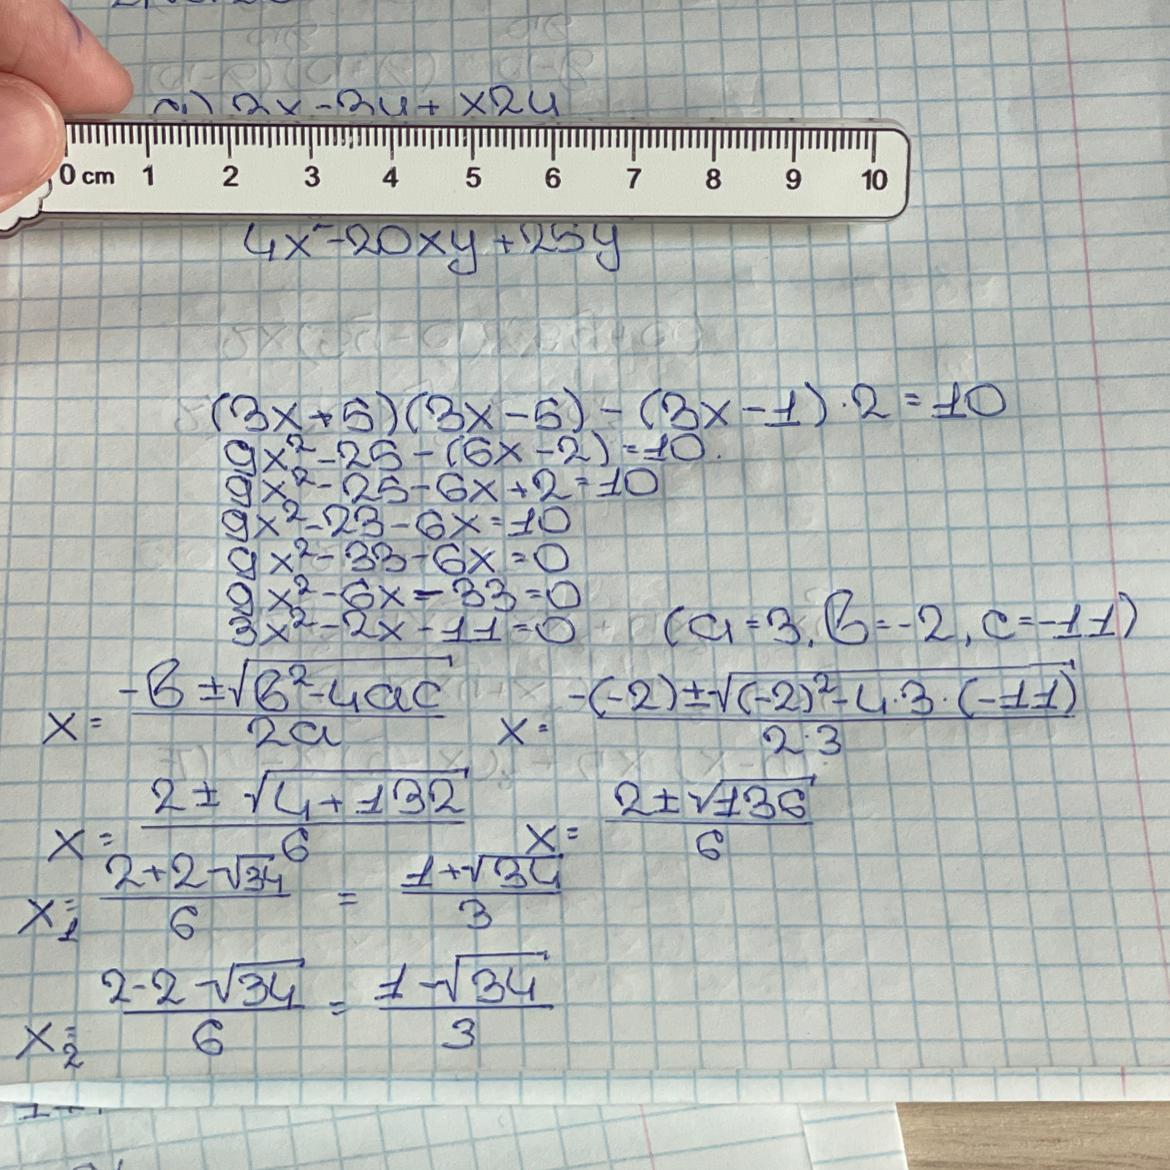 0 cm 1 2 3 4 5 6 7 8 9 10
4x²-20xy+25y
(3x+5)(3x-5)-(3x-1)·2=10
9x²-25-(6x-2)=10.
9x²-25-6x+2=10
9x²-23-6x=10
9x²-33-6x=0
9x²-6x-33=0
3x²-2x-11=0 (a=3, b=-2, c=-11)
x= (-b±√(b²-4ac))/(2a) x= (-(-2)±√((-2)²-4·3·(-11)))/(2·3)
x= (2±√(4+132))/6 x= (2±√136)/6
x₁= (2+2-√34)/6 = (1+√34)/3
x₂= (2-2-√34)/6 = (1-√34)/3